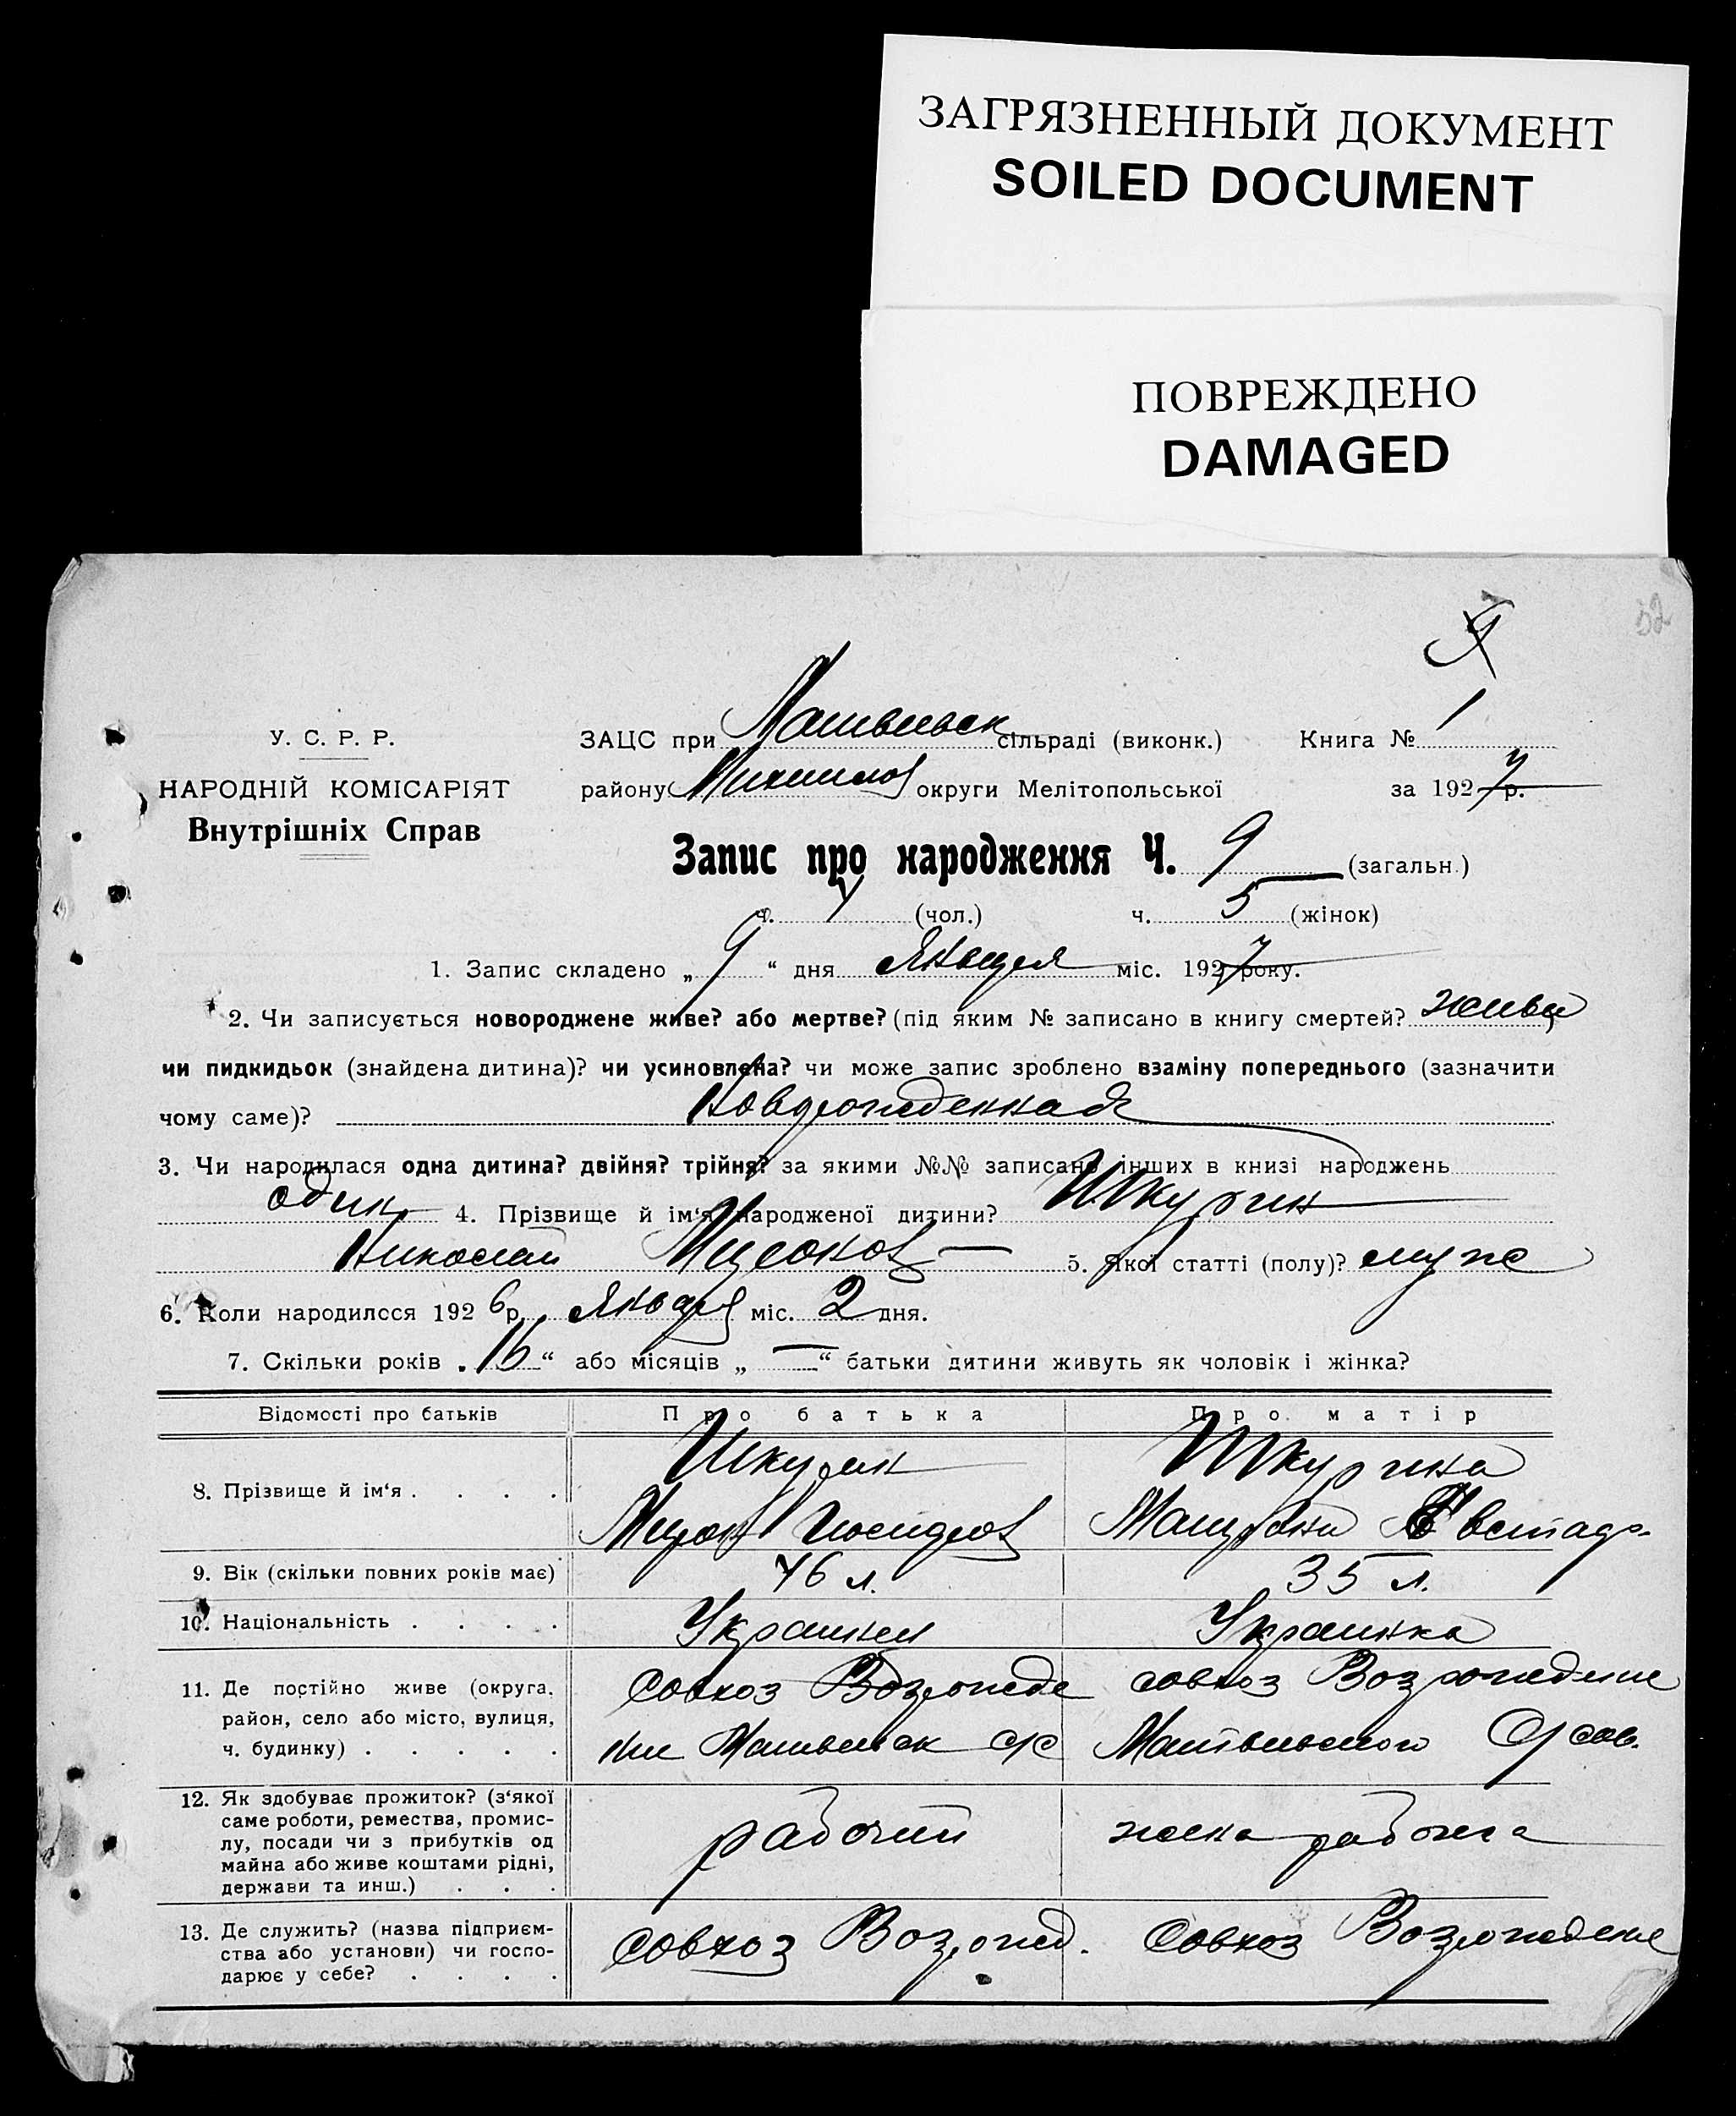 ЗАГРЯЗНЕННЫЙ ДОКУМЕНТ
SOILED DOCUMENT
ПОВРЕЖДЕНО
DAMAGED
У. С. Р. Р.
НАРОДНІЙ КОМІСАРІЯТ
Внутрішніх Справ
ЗАЦС при Матвеевск сільраді (виконк.) Книга № 1
району Михайлов округи Мелітопольської за 1927 р.
Запис про народження Ч. 9 (загальн.)
ч. 4 (чол.) ч. 5 (жінок)
1. Запис складено „ 9 “ дня Января міс. 1927 року.
2. Чи записується новороджене живе? або мертве? (під яким № записано в книгу смертей?
чи пидкидьок (знайдена дитина)? чи усиновлена? чи може запис зроблено взаміну попереднього (зазначити
чому саме)? Новорожденная
3. Чи народилася одна дитина? двійня? трійня? за якими №№ записано інших в книзі народжень
один 4. Прізвище й ім‘я народженої дитини? Шкурин
Николай Миронов — 5. Якої статті (полу)? муж
6. Коли народилсся 1926 р. Января міс. 2 дня.
7. Скільки років „ 16 “ або місяців „ — “ батьки дитини живуть як чоловік і жінка?
Відомості про батьків Про батька Про матір
8. Прізвище й ім‘я . . . . Шкурин Шкурина
Мирон
9. Вік (скільки повних років має) 46 л. 35 л.
10. Національність . . . . Украинец Украинка
11. Де постійно живе (округа, совхоз Возрожде совхоз Возрождение
район, село або місто, вулиця, ние Матвеевск с/с Матвеевского С/сов.
ч. будинку) . . . . .
12. Як здобуває прожиток? (з‘якої
саме роботи, ремества, промис-
лу, посади чи з прибутків од рабочий жена рабочего
майна або живе коштами рідні,
держави та инш.) . . .
13. Де служить? (назва підприєм- совхоз Возрожд. совхоз Возрождение
ства або установи) чи госпо-
дарює у себе? . . . .